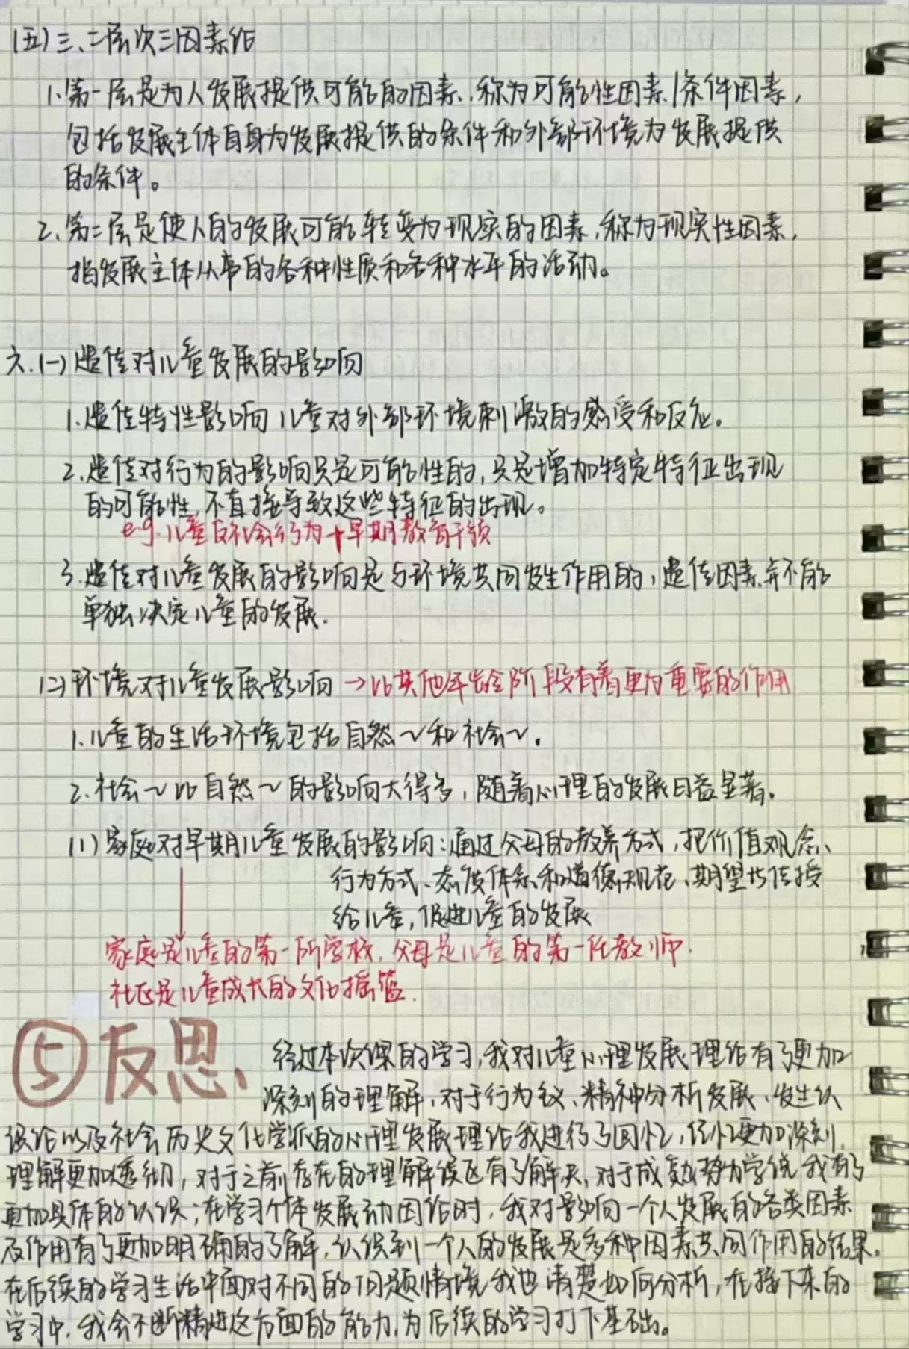 (五)三、二层次三因素论
1.第一层是为人发展提供可能的因素,称为可能性因素/条件因素,
包括发展主体自身为发展提供的条件和外部环境为发展提供
的条件。
2.第二层是使人的发展可能转变为现实的因素,称为现实性因素,
指发展主体从事的各种性质和各种水平的活动。
六.(一)遗传对儿童发展的影响
1.遗传特性影响儿童对外部环境刺激的感受和反应。
2.遗传对行为的影响只是可能性的,只是增加特定特征出现
的可能性,不直接导致这些特征的出现。
e.g.儿童的社会行为+早期教育干预
3.遗传对儿童发展的影响是与环境共同发生作用的,遗传因素并不能
单独决定儿童的发展.
(二)环境对儿童发展影响→比其他年龄阶段有着更为重要的作用
1.儿童的生活环境包括自然~和社会~.
2.社会~比自然~的影响大得多,随着心理的发展日益显著。
(1)家庭对早期儿童发展的影响:通过父母的教养方式,把价值观念、
行为方式、态度体系和道德规范、期望传授
给儿童,促进儿童的发展
家庭是儿童的第一所学校,父母是儿童的第一任教师.
社区是儿童成长的文化摇篮.
⑤反思、
经过本次课的学习,我对儿童心理发展理论有了更加
深刻的理解,对于行为主义、精神分析发展、发生认
识论以及社会历史文化学派的心理发展理论我进行了回忆,记忆更加深刻,
理解更加透彻,对于之前存在的理解误区有了解决,对于成熟势力学说我有了
更加具体的认识;在学习个体发展动因论时,我对影响一个人发展的各类因素
及作用有了更加明确的了解,认识到一个人的发展是多种因素共同作用的结果.
在后续的学习生活中面对不同的问题情境我也清楚如何分析,在接下来的
学习中,我会不断精进这方面的能力,为后续的学习打下基础。